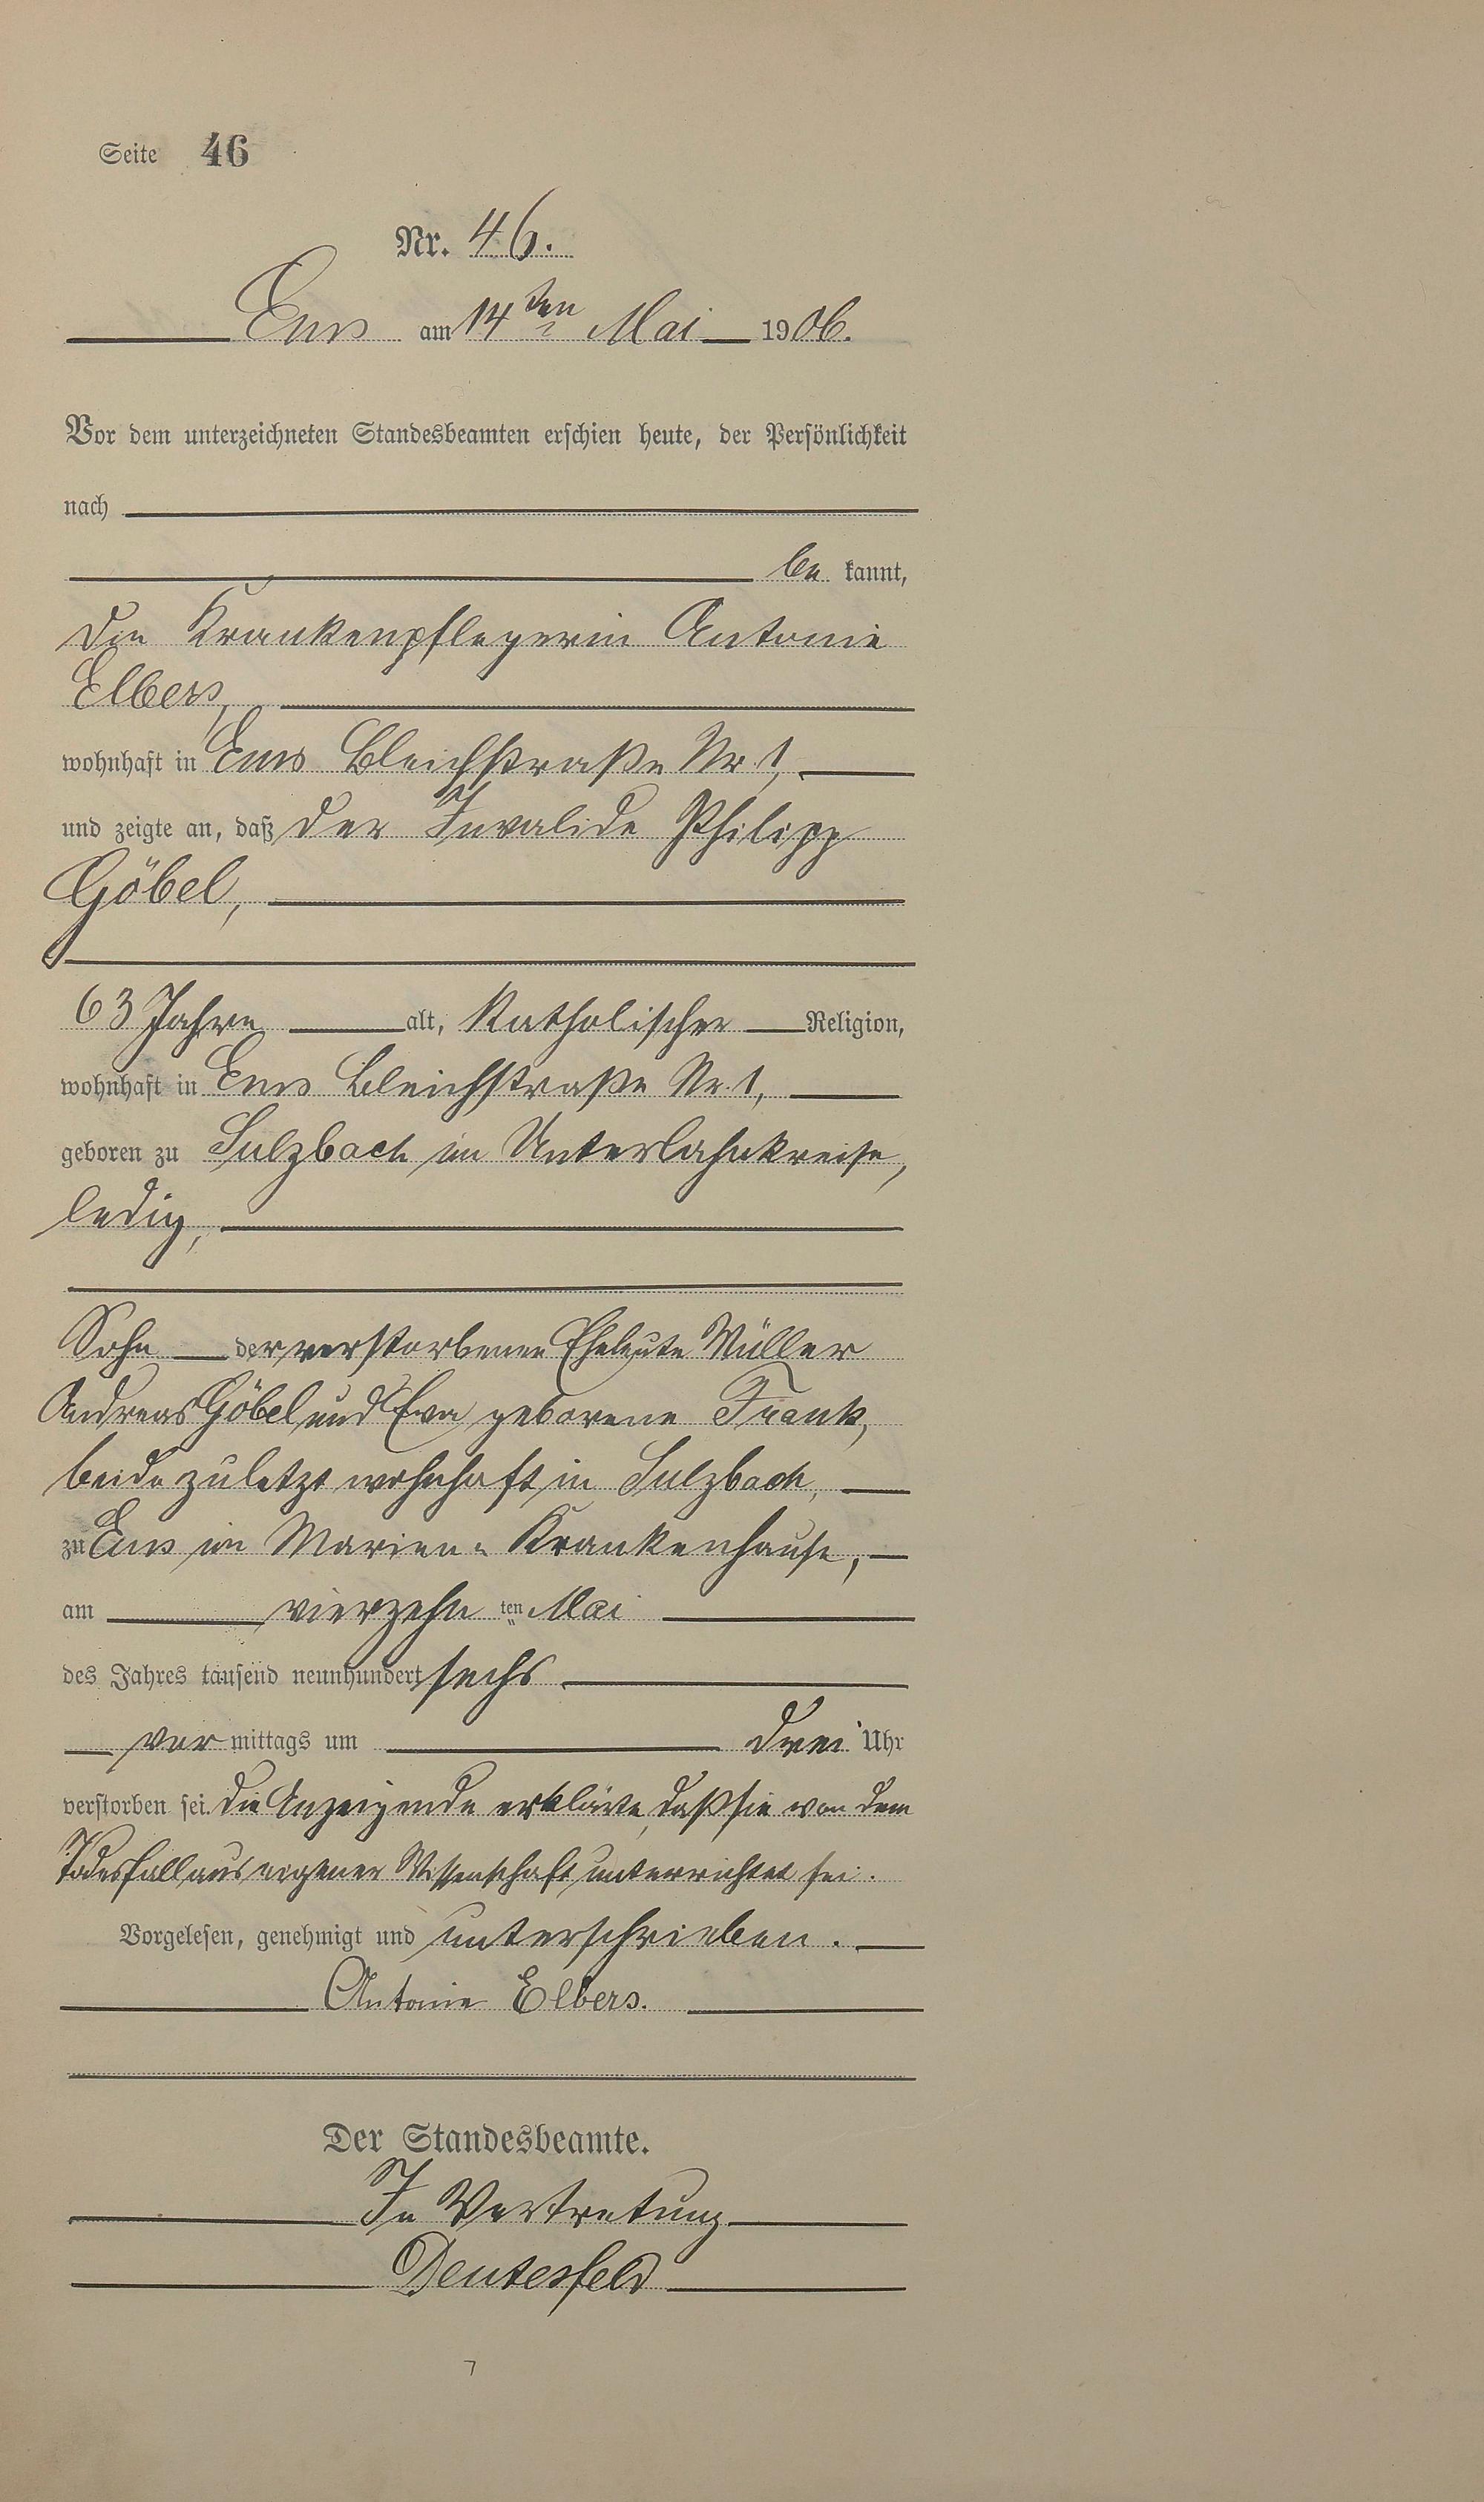 Seite 46
Nr. 46.
Ems am 14ten Mai 1906.
Vor dem unterzeichneten Standesbeamten erschien heute, der Persönlichkeit
nach
be kannt,
die Krankenpflegerin Antonie
Elbers,
wohnhaft in Ems Bleichstraße Nr. 1,
und zeigte an, daß der Invalide Philipp
Göbel,
63 Jahre alt, katholischer Religion,
wohnhaft in Ems Bleichstraße Nr. 1,
geboren zu Sulzbach im Unterlahnkreise,
ledig,
Sohn der verstorbenen Eheleute Müller
Andreas Göbel und Eva geborene Frank,
beide zuletzt wohnhaft in Sulzbach,
zu Ems im Marien-Krankenhause,
am vierzehn ten Mai
des Jahres tausend neunhundert sechs
vor mittags um drei Uhr
verstorben sei. Die Anzeigende erklärte, daß sie von dem
Todesfall aus eigener Wissenschaft unterrichtet sei.
Vorgelesen, genehmigt und unterschrieben.
Antonie Elbers.
Der Standesbeamte.
In Vertretung
Deutesfeld